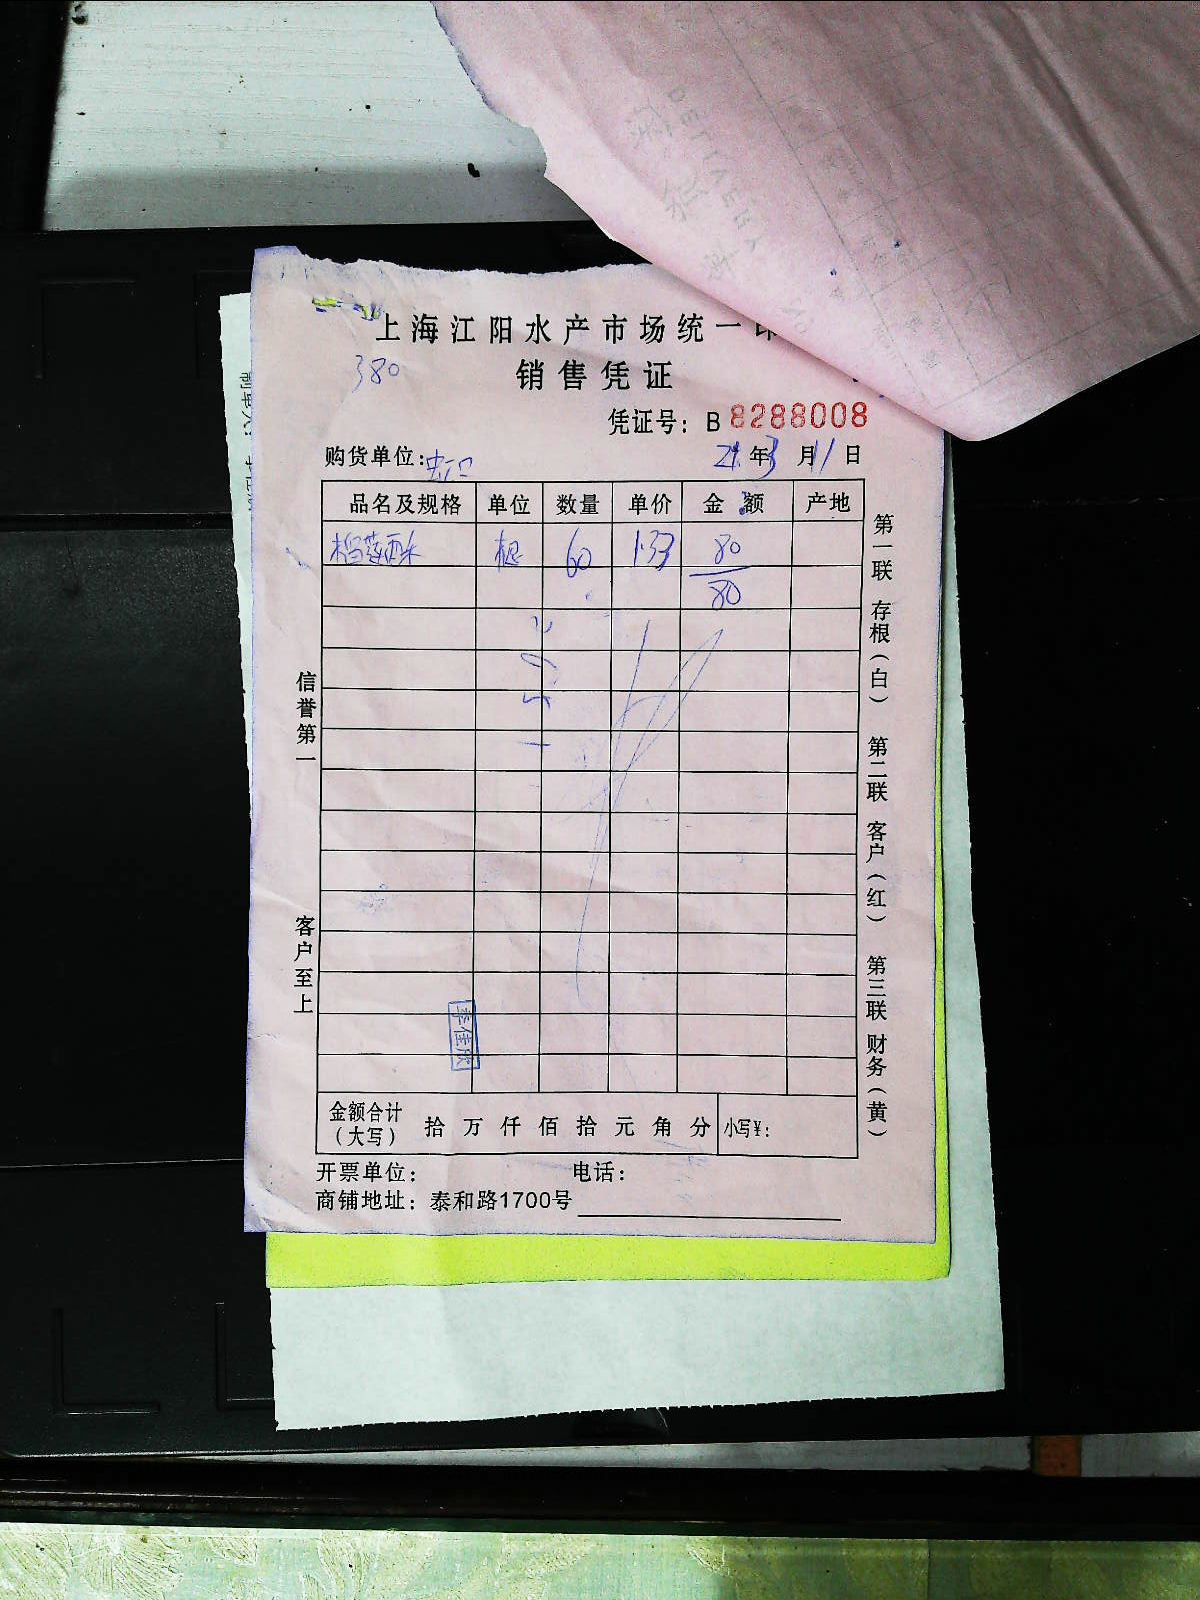 上海江阳水产市场统一印
380
销售凭证
凭证号：B 8288008
购货单位：虹口 21年3月11日
品名及规格 单位 数量 单价 金额 产地
榴莲酥 根 60 1.33 80
80
信誉第一
客户至上
第一联 存根（白） 第二联 客户（红） 第三联 财务（黄）
李佳欣
金额合计（大写） 拾 万 仟 佰 拾 元 角 分 小写¥：
开票单位： 电话：
商铺地址：泰和路1700号